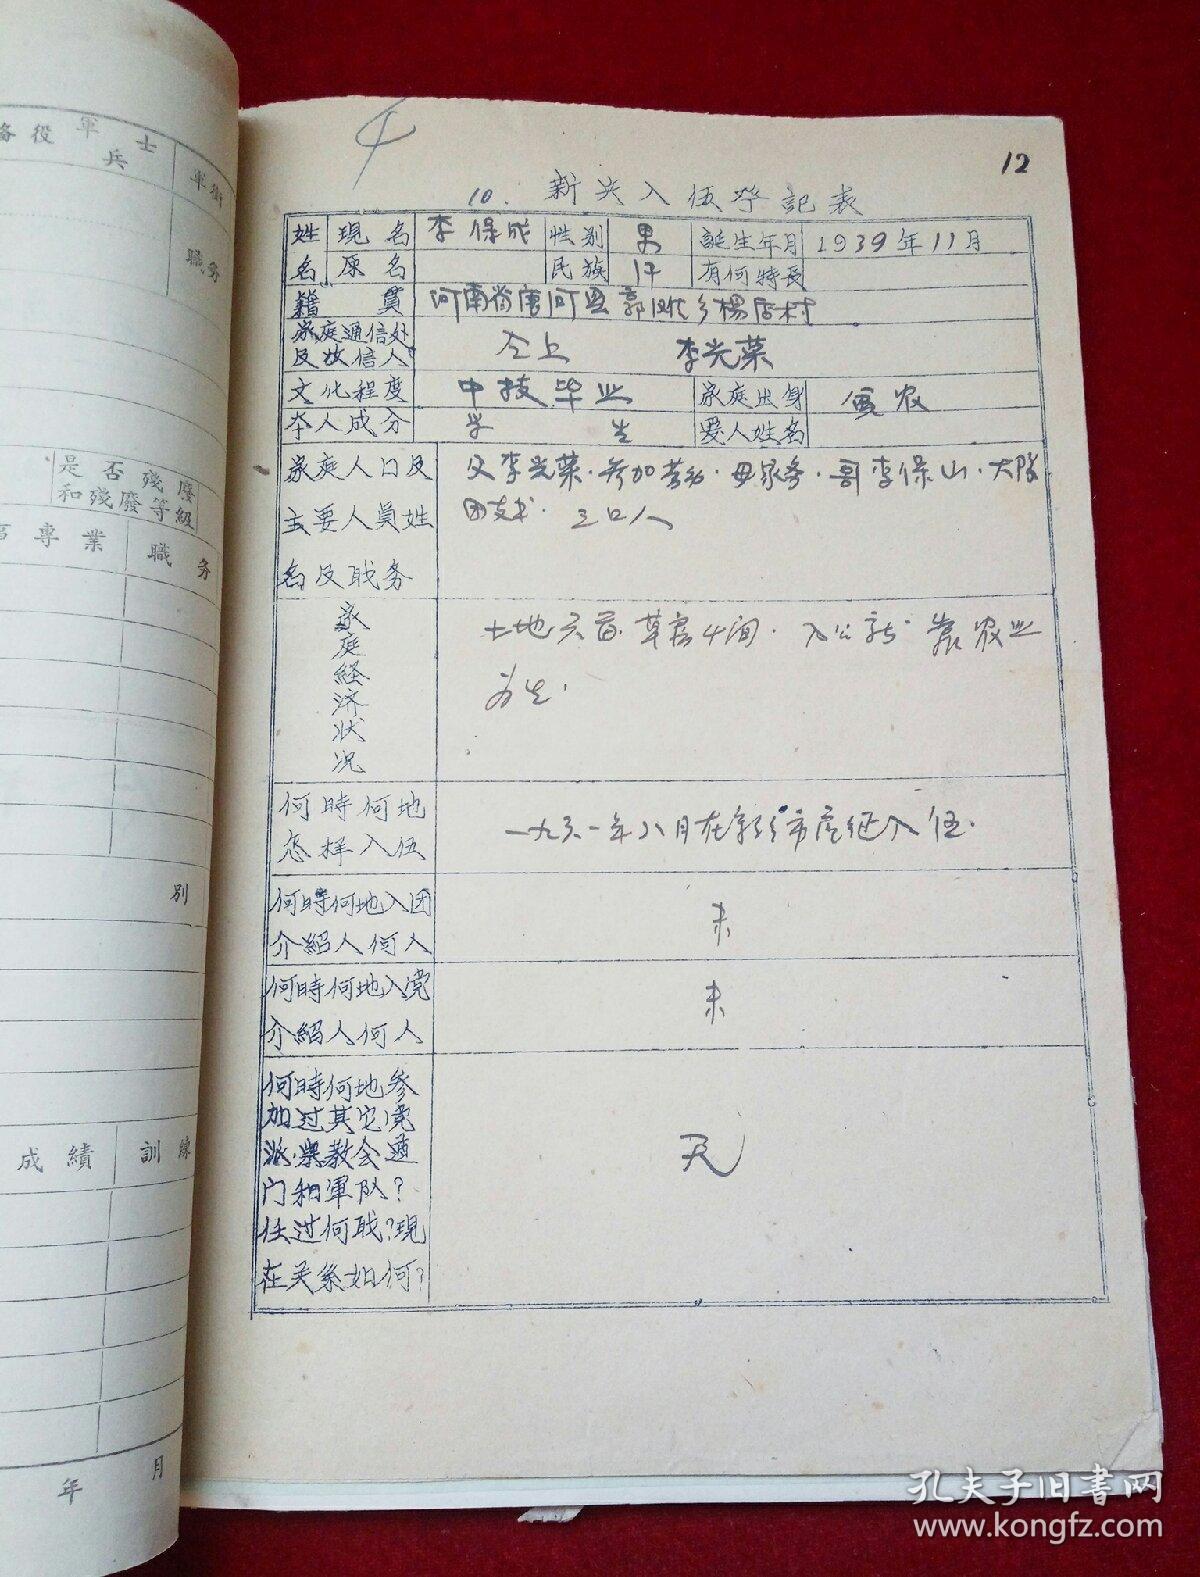 备役軍士
兵
軍銜
職务
是否殘廢
和殘廢等級
專業
職务
別
成績
訓練
年 月
12
10. 新兵入伍登記表
姓名
現名
李保成
性别
男
誕生年月
1939年11月
原名
民族
汉
有何特長
籍貫
河南省唐河县郭滩乡楊店村
家庭通信处
及收信人
仝上 李光荣
文化程度
中技毕业
家庭出身
贫农
本人成分
学生
爱人姓名
家庭人口及
主要人員姓
名及职务
父李光荣·参加劳动·母家务·哥李保山·大队
团支书· 三口人
家庭経济状况
土地六亩·草房4间·入公社·靠农业
为生·
何時何地
怎样入伍
一九六一年八月在新乡市应征入伍·
何時何地入团
介紹人何人
未
何時何地入党
介紹人何人
未
何時何地参
加过其它党
派·宗教会道
门和軍队?
任过何职?現
在关系如何?
无
孔夫子旧書网
www.kongfz.com